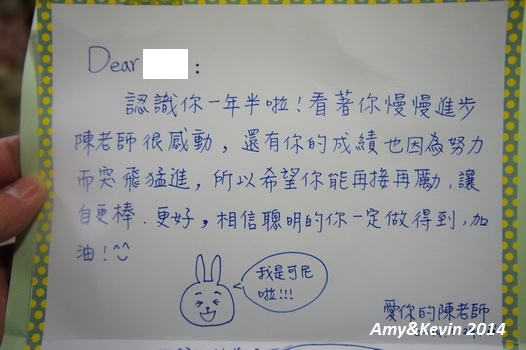 Dear :
認識你一年半啦!看著你慢慢進步
陳老師很感動,還有你的成績也因為努力
而突飛猛進,所以希望你能再接再勵,讓
自更棒.更好,相信聰明的你一定做得到,加
油!^^
我是可尼
啦!!!
愛你的陳老師
Amy&Kevin 2014